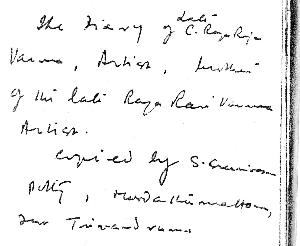 late
The Diary of C. Raja Raja
Varma, Artist, brother
of the late Raja Ravi Varma
Artist.
Copied by S.
Potty,
Trivandrum